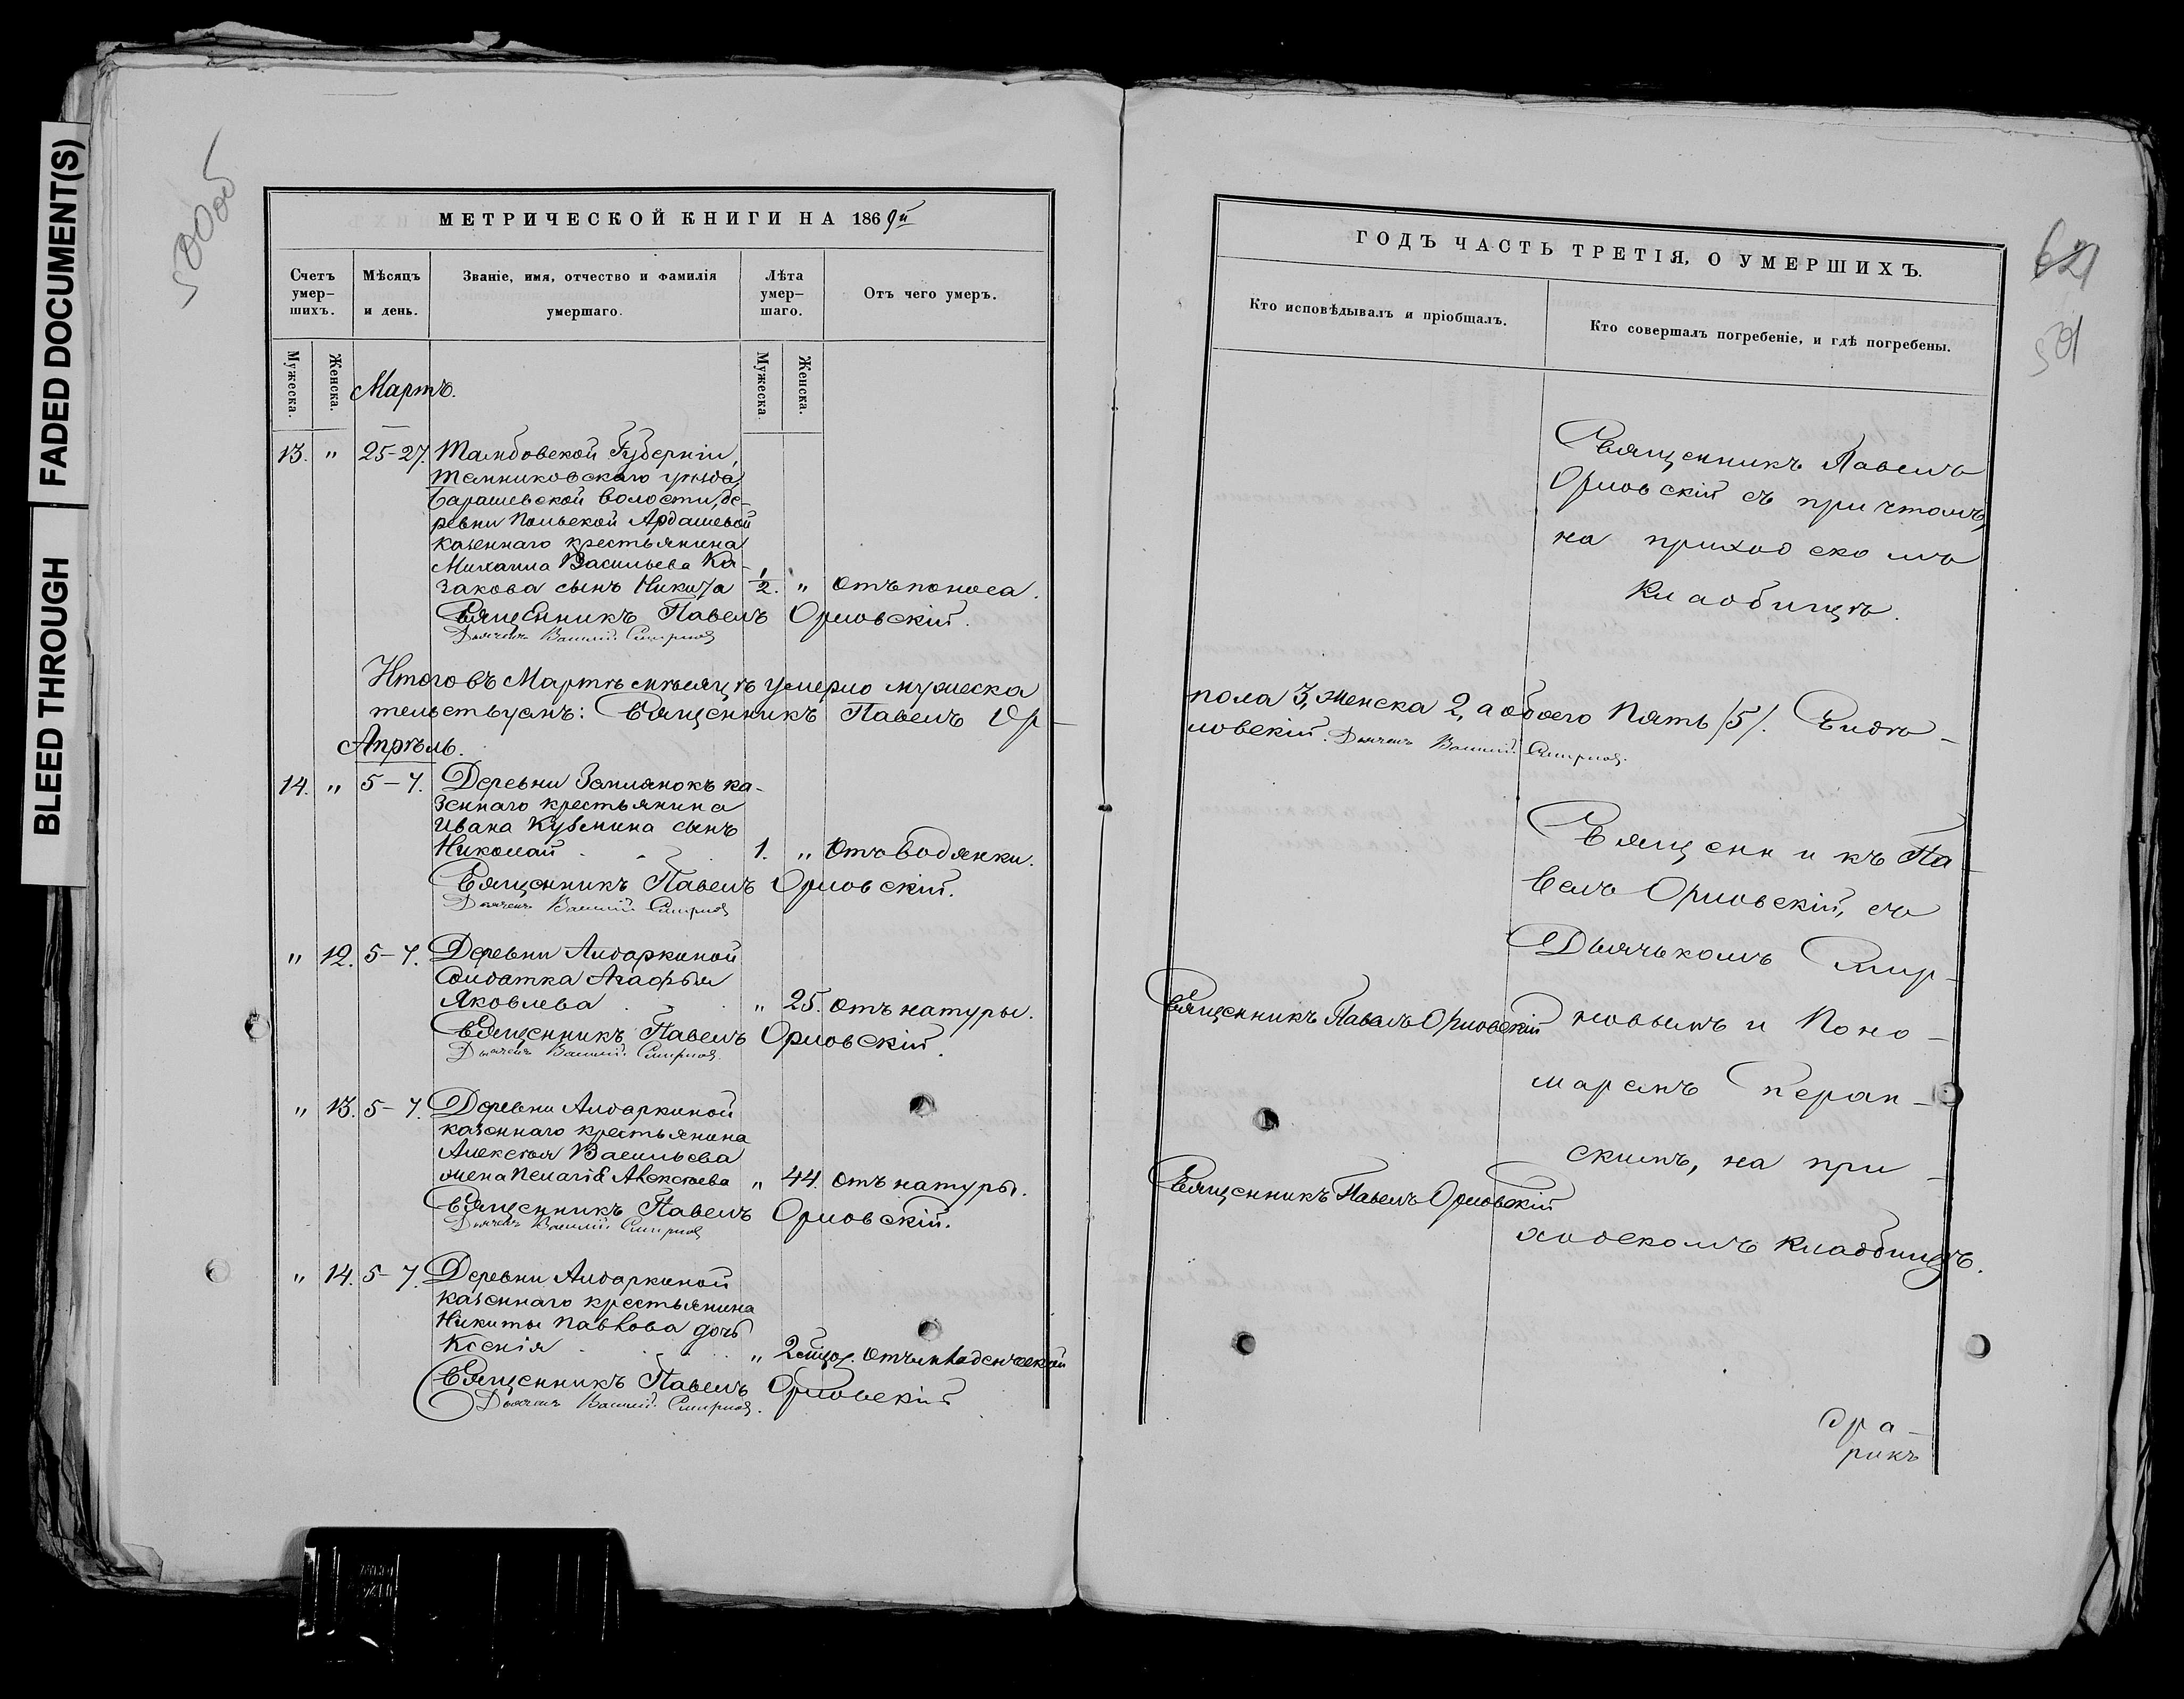 FADED DOCUMENT(S)
BLEED THROUGH
МЕТРИЧЕСКОЙ КНИГИ НА 1869й
Счетъ умер-шихъ.
Мѣсяцъ и день.
Званіе, имя, отчество и фамилія умершаго.
Лѣта умер-шаго.
Отъ чего умеръ.
Мужеска.
Женска.
Мужеска.
Женска.
Мартъ.
13. " 25-27. Тамбовской Губерніи,
Темниковскаго уѣзда,
Барашевской волости, де-
ревни Польской Ардашевой
казеннаго крестьянина
Михаила Васильева Ка-
закова сынъ Никита 1/2. " Отъ поноса.
Священникъ Павелъ Орловскій.
Дьячекъ Василій Смирновъ
Итого въ Мартѣ мѣсяцѣ умерло мужеска
тельствуемъ: Священникъ Павелъ Ор-
Апрѣль.
14. " 5-7. Деревни Землянокъ ка-
зеннаго крестьянина
Ивана Кузмина сынъ
Николай 1. " Отъ водянки.
Священникъ Павелъ Орловскій.
Дьячекъ Василій Смирновъ
" 12. 5-7. Деревни Алдаркиной
Солдатка Агафья
Яковлева " 25. Отъ натуры.
Священникъ Павелъ Орловскій.
Дьячекъ Василій Смирновъ
" 13. 5-7. Деревни Алдаркиной
казеннаго крестьянина
Алексѣя Васильева
жена Пелагія Алексѣева " 44. Отъ натуры.
Священникъ Павелъ Орловскій.
Дьячекъ Василій Смирновъ
" 14. 5-7. Деревни Алдаркиной
казеннаго крестьянина
Никиты Павлова дочь
Ксенія " 2 Отъ младенческой
Священникъ Павелъ Орловскій
Дьячекъ Василій Смирновъ.
ГОДЪ ЧАСТЬ ТРЕТІЯ, О УМЕРШИХЪ.
501
Кто исповѣдывалъ и пріобщалъ.
Кто совершалъ погребеніе, и гдѣ погребены.
Священникъ Павелъ
Орловскій съ причтомъ,
на приходскомъ
кладбищѣ.
пола 3, женска 2, а обоего Пять /5/. Свидѣ-
ловскій. Дьячекъ Василій Смирновъ.
Священникъ Па-
велъ Орловскій, съ
Дьячькомъ Смир-
Священникъ Павелъ Орловскій
новымъ и Поно-
маремъ
скимъ, на при-
Священникъ Павелъ Орловскій
ходскомъ кладбищѣ.